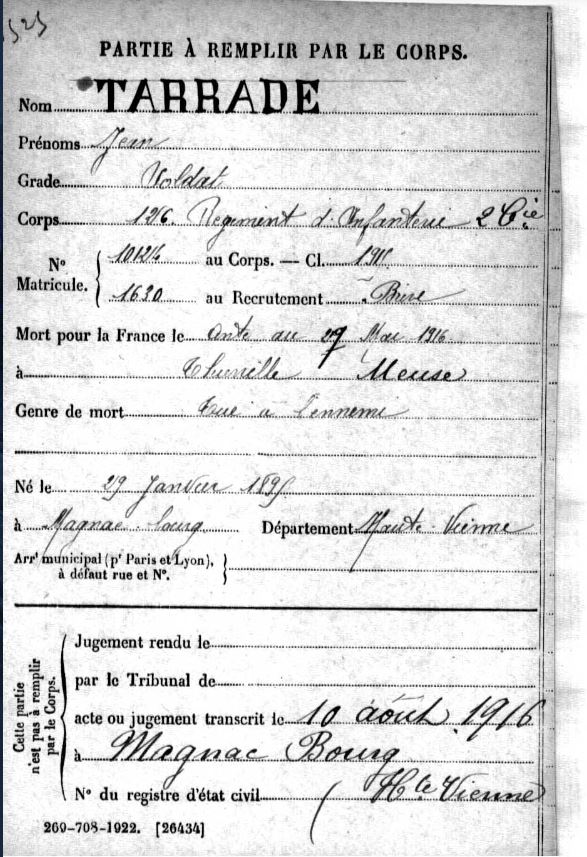 PARTIE À REMPLIR PAR LE CORPS.
Nom TARRADE
Prénoms Jean
Grade Soldat
Corps 126 Regiment d'Infanterie 2 Cie
N° Matricule. 10124 au Corps. — Cl. 1915
1630 au Recrutement Brive
Mort pour la France le au 27 Mai 1916
à Meuse
Genre de mort Tué à l'ennemi
Né le 29 Janvier 1895
à Magnac-bourg Département Haute-Vienne
Arrt municipal (pr Paris et Lyon),
à défaut rue et N°.
Cette partie n'est pas à remplir par le Corps.
Jugement rendu le
par le Tribunal de
acte ou jugement transcrit le 10 août 1916
à Magnac Bourg
N° du registre d'état civil Hte Vienne
269-708-1922. [26434]